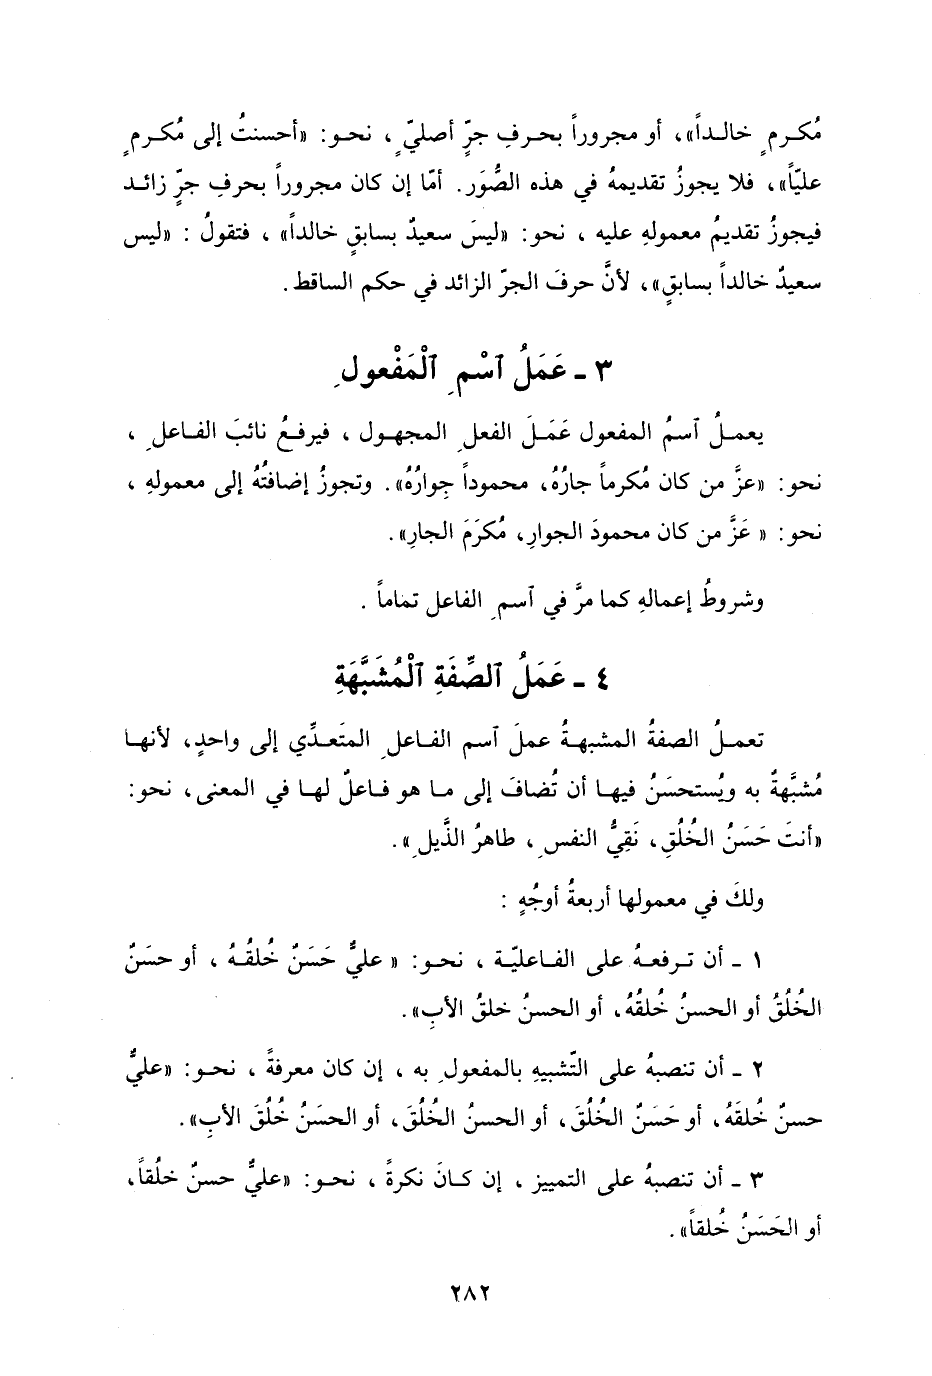 مُكـرمٍ خالـداً»، أو مجروراً بحرفِ جرٍّ أصليّ، نحـو: «أحسنتُ إلى مُكـرمٍ
عليّاً»، فلا يجوزُ تقديمهُ في هذه الصُّوَر. أمّا إن كان مجروراً بحرفِ جرٍّ زائـد
فيجوزُ تقديمُ معمولهِ عليه، نحو: «ليسَ سعيدٌ بسابقٍ خالداً»، فتقولُ: «ليس
سعيدٌ خالداً بسابقٍ»، لأنَّ حرفَ الجرّ الزائد في حكم الساقط.
٣ ـ عَمَلُ ٱسْمِ ٱلْمَفْعولِ
يعمـلُ ٱسمُ المفعول عَمَـلَ الفعلِ المجهـول، فيرفـعُ نائبَ الفـاعلِ،
نحو: «عزَّ من كان مُكرماً جارُهُ، محموداً جِوارُهُ». وتجوزُ إضافتُهُ إلى معمولهِ،
نحو: «عَزَّ من كان محمودَ الجوارِ، مُكرَمَ الجارِ».
وشروطُ إعمالهِ كما مرَّ في ٱسمِ الفاعل تماماً.
٤ ـ عَمَلُ ٱلصِّفَةِ ٱلْمُشَبَّهَةِ
تعمـلُ الصفةُ المشبهـةُ عملَ ٱسم الفـاعلِ المتَعدِّي إلى واحدٍ، لأنهـا
مُشبَّهةٌ به ويُستحسَنُ فيهـا أن تُضافَ إلى مـا هو فـاعلٌ لهـا في المعنى، نحو:
«أنتَ حَسَنُ الخُلُقِ، نَقِيُّ النفسِ، طاهرُ الذَّيلِ».
ولكَ في معمولها أربعةُ أوجُهٍ:
١ ـ أن تـرفعـهُ على الفـاعليّـة، نحـو: «عليٌّ حَسَنٌ خُلقُـهُ، أو حسَنٌ
الخُلُقُ أو الحسنُ خُلقُهُ، أو الحسنُ خلقُ الأبِ».
٢ ـ أن تنصبهُ على التّشبيهِ بالمفعولِ به، إن كان معرفةً، نحـو: «عليٌّ
حسنٌ خُلقَهُ، أو حَسَنٌ الخُلُقَ، أو الحسنُ الخُلُقَ، أو الحسَنُ خُلُقَ الأبِ».
٣ ـ أن تنصبهُ على التمييز، إن كـانَ نكرةً، نحـو: «عليٌّ حسنٌ خلُقاً،
أو الحَسَنُ خُلقاً».
٢٨٢